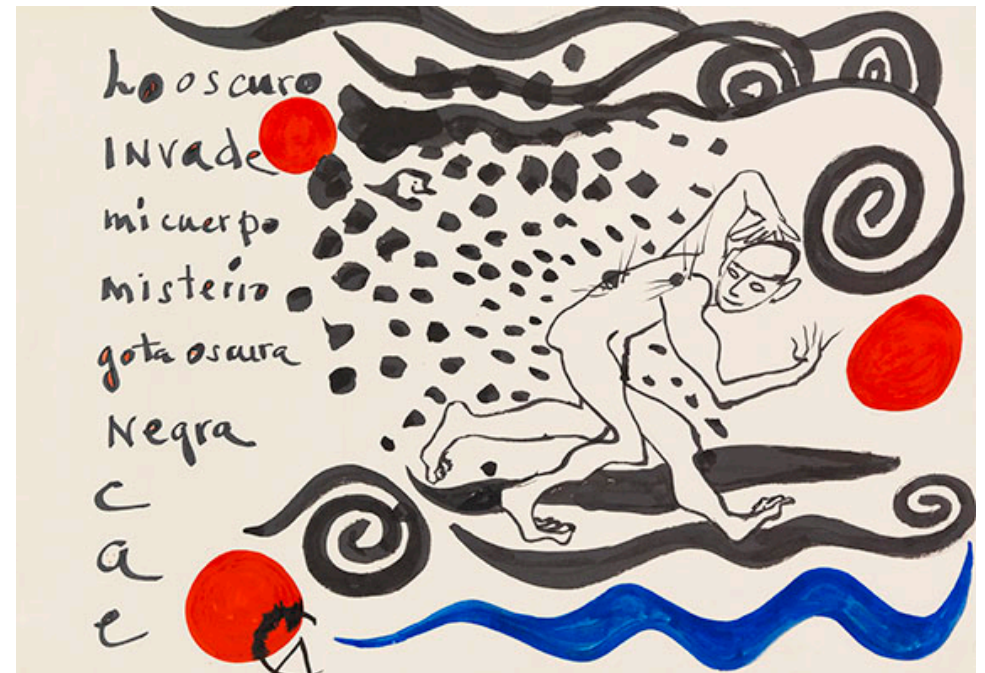 Lo oscuro
INVade
mi cuerpo
misterio
gota oscura
Negra
c
a
e